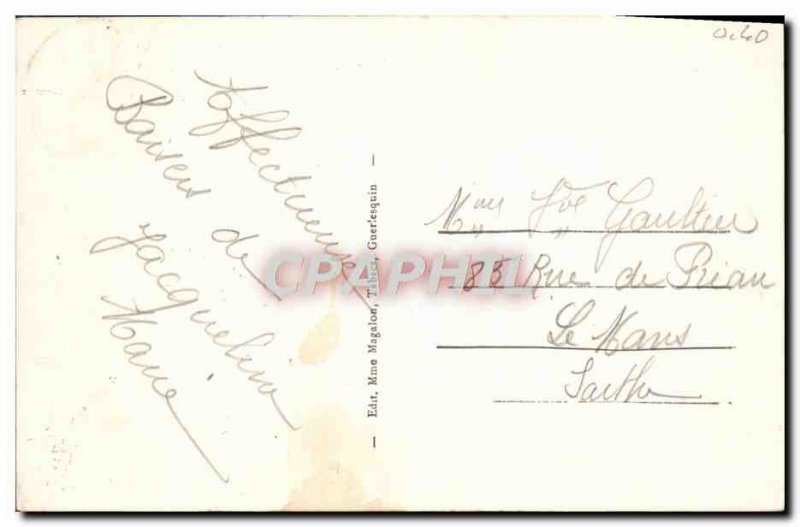 0.40
Affectueux
Baisers de
Jacqueline
Marie
— Edit. Mme Magalon, Tabacs, Guerlesquin —
CPAPHIL
Mme Vve Gaultier
85 Rue de Prian
Le Mans
Sarthe